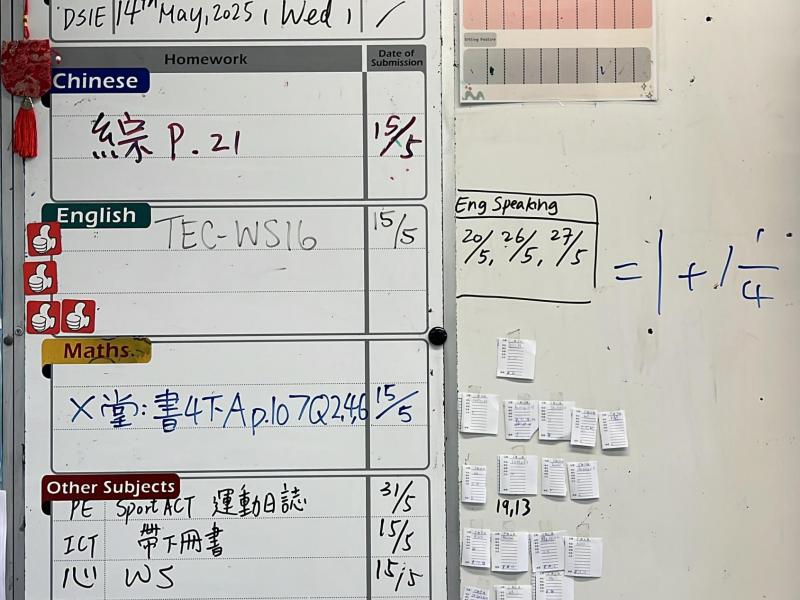 DSIE 14th May, 2025, Wed, /
Homework
Date of Submission
Chinese
綜 P. 21 15/5
English
TEC-WS16 15/5
Maths
X 堂: 書4下A p.107Q2,4,6 15/5
Other Subjects
PE Sport ACT 運動日誌 31/5
ICT 帶下冊書 15/5
心 WS 15/5
Eng Speaking
20/5, 26/5, 27/5
= 1 + 1 1/4
19,13